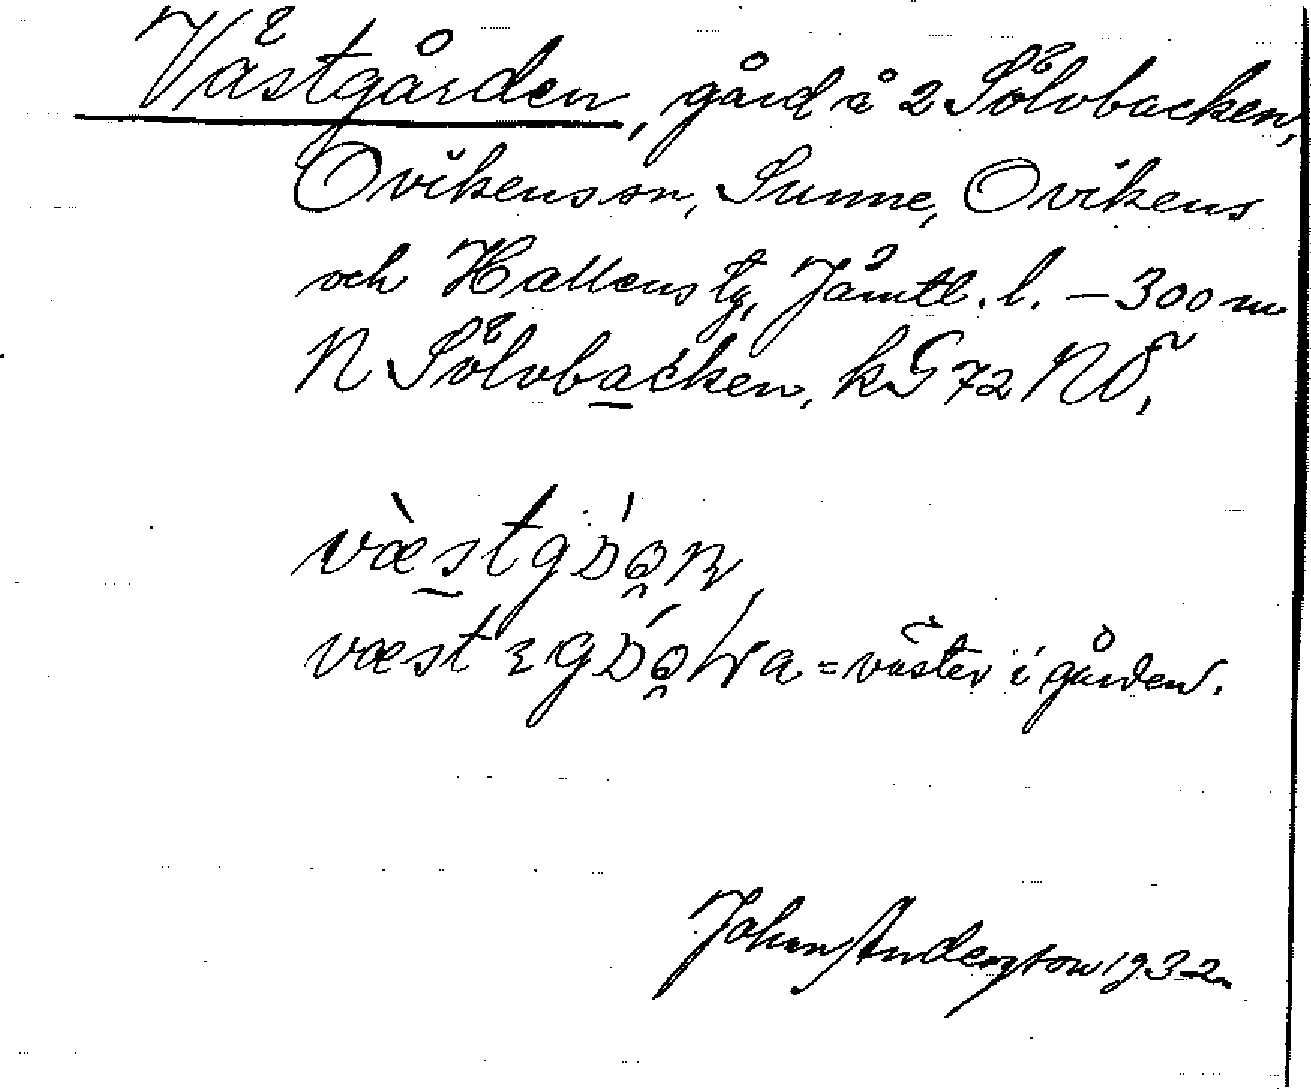 Västgården, gård å 2 Sölvbacken,
Ovikens sn, Sunne, Ovikens
och Hallens tg, Jämtl. l. – 300 m
N Sölvbacken, kG 72 NO,
= väster i gården.
John Anderson 1932.